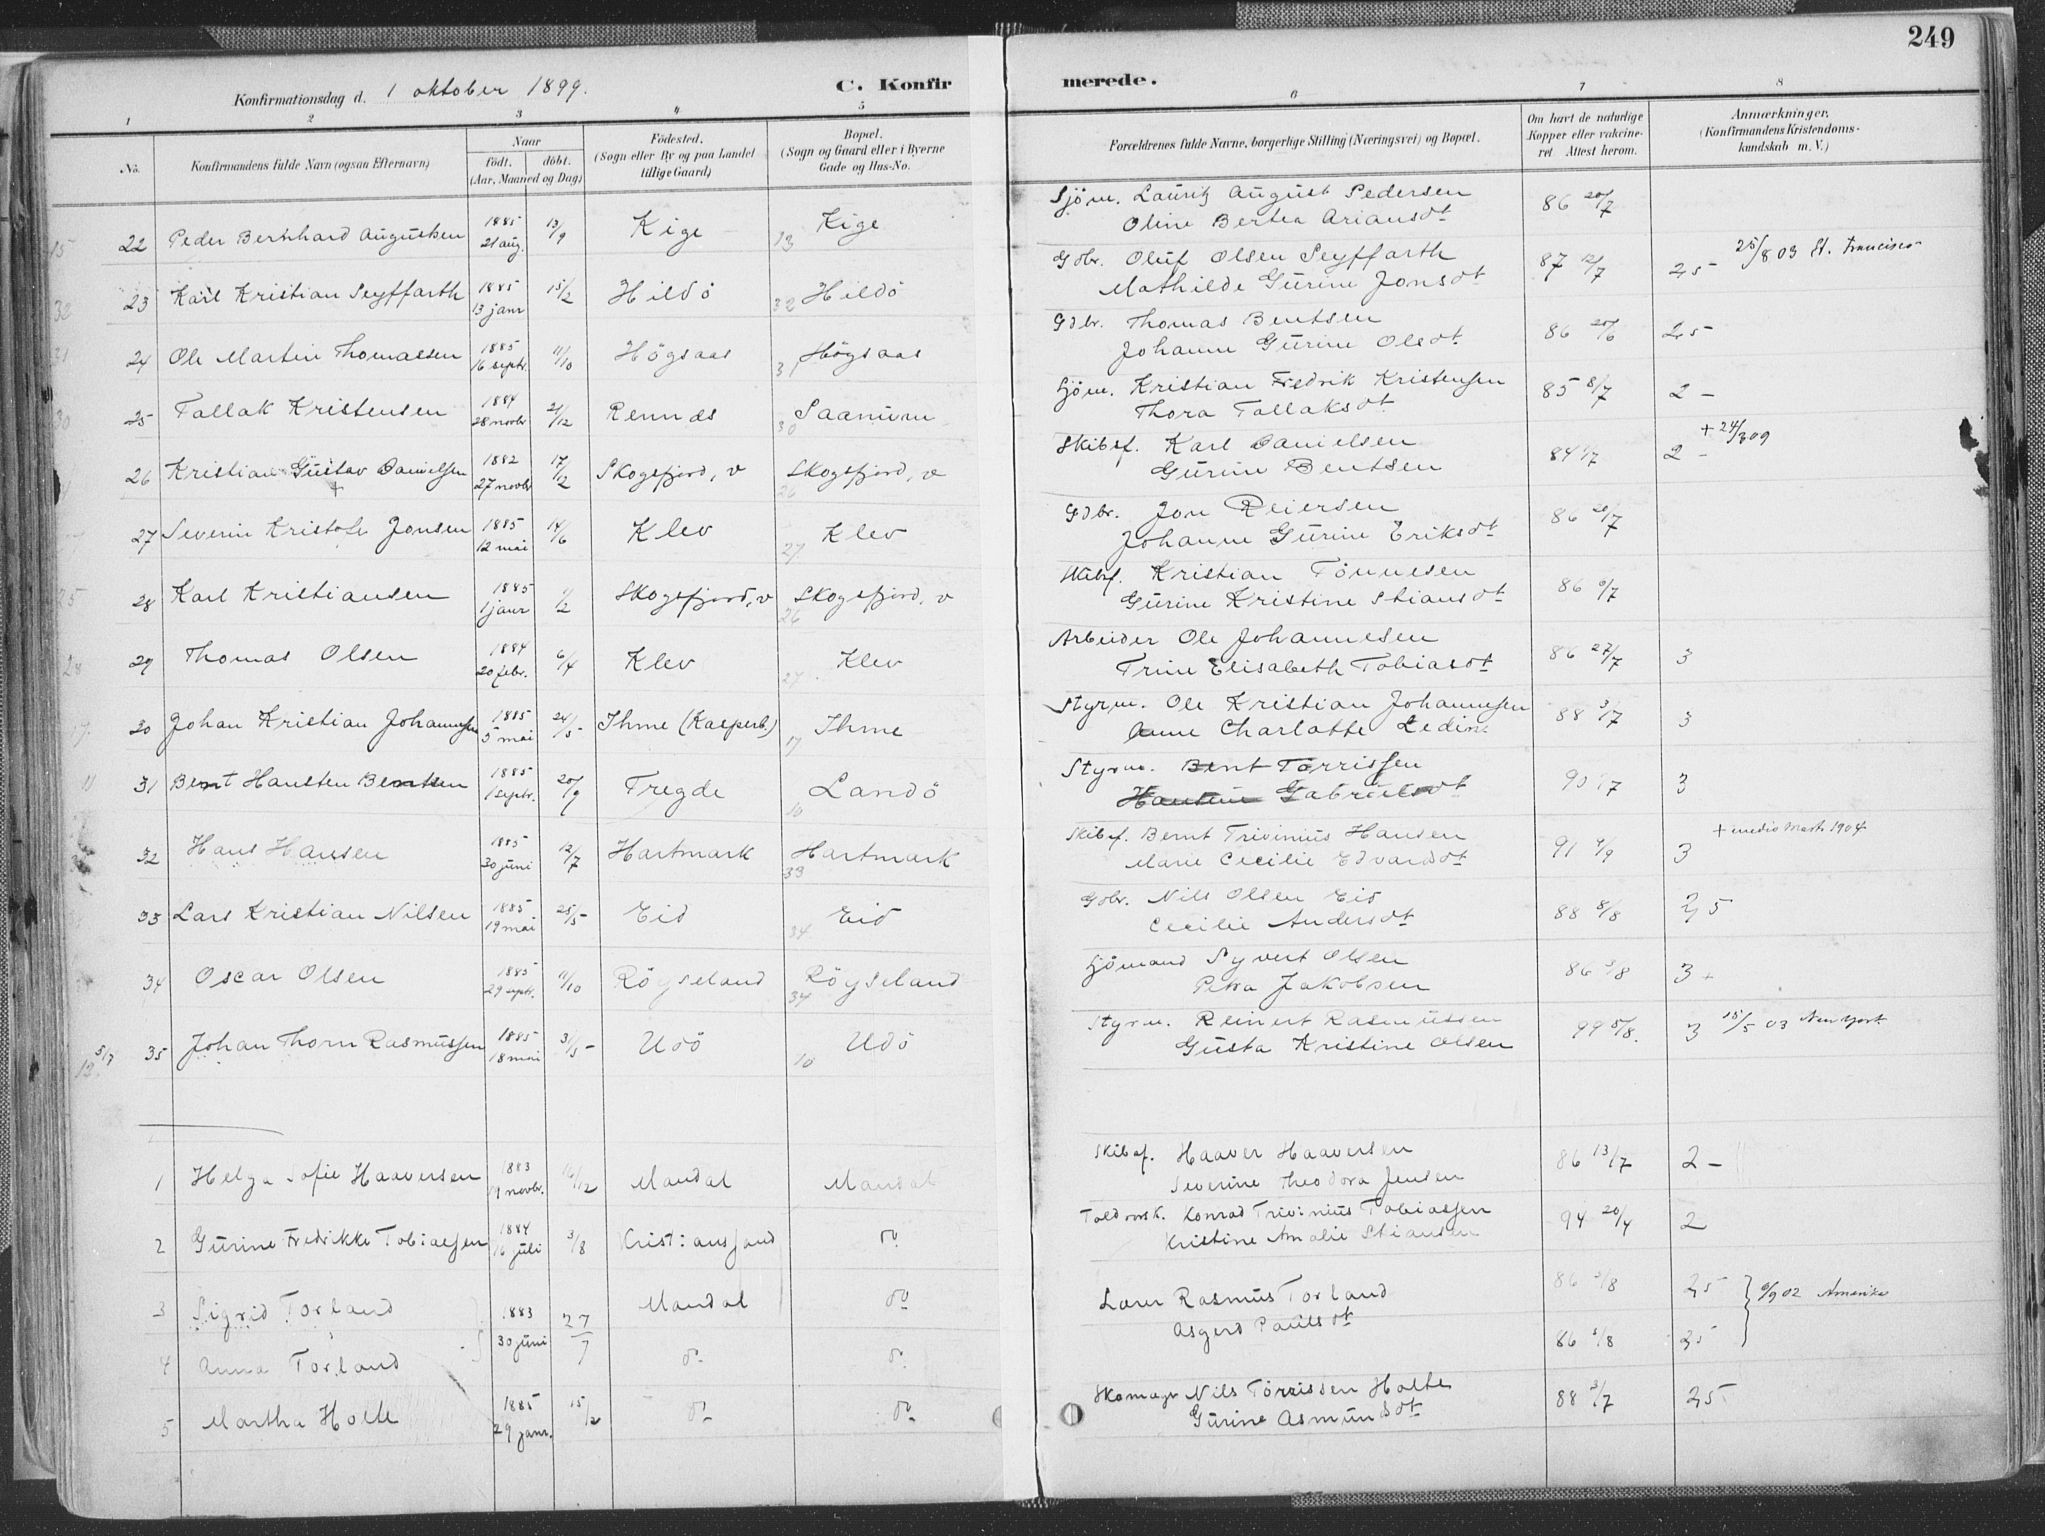 249
Konfirmationsdag d. 1 oktober 1899.
C. Konfirmerede.
1 2 3 4 5 6 7 8
No.
Konfirmandens fulde Navn (ogsaa Efternavn)
Naar
födt. döbt.
(Aar, Maaned og Dag)
Födested.
(Sogn eller By og paa Landet
tillige Gaard)
Bopæl.
(Sogn og Gaard eller i Byerne
Gade og Hus-No.
Forældrenes fulde Navne, borgerlige Stilling (Næringsvei) og Bopæl.
Om havt de naturlige
Kopper eller vakcine-
ret. Attest herom.
Anmærkninger.
(Konfirmandens Kristendoms-
kundskab m. V.)
22 Peder Bernhard Augustsen 1885 21 aug. 13/9 Kige 13 Kige
Sjöm. Lauritz August Pedersen 86 20/7
Oline Bertea Ariansdt
23 Karl Kristian Seyffarth 1885 13 janr 15/2 Hildö 32 Hildö
Gdbr. Oluf Olsen Seyffarth 87 12/7 2,5 25/8 03 St. Francisco
Mathilde Gurine Jonsdt
24 Ole Martin Thomassen 1885 16 septr. 11/10 Högsaas 31 Högsaas
Gdbr. Thomas Bentsen 86 25/6 2,5
Johanne Gurine Olsdt
25 Tallak Kristensen 1884 28 novbr 21/12 Rennes 30 Saanum
Sjöm. Kristian Fredrik Kristensen 85 8/7 2 -
Thora Tallaksdt
26 Kristian Gustav Danielsen 1882 27 novbr 17/12 Skogsfjord, v 26 Skogsfjord, v
+
Skibsf. Karl Danielsen 84 1/7 2 - + 24/3 09
Gurine Bentsen
27 Severin Kristofe Jonsen 1885 12 mai 14/6 Klev 27 Klev
Gdbr. Jon Reiersen 86 20/7
Johanne Gurine Eriksdt
28 Karl Kristiansen 1885 1 janr 1/2 Skogsfjord, v 26 Skogsfjord, v
Skibsf. Kristian Tönnesen 86 6/7
Gurine Kristine Stiansdt
29 Thomas Olsen 1884 20 febr. 6/4 Klev 27 Klev
Arbeider Ole Johannesen 86 27/7 3
Trine Elisabeth Tobiasdt
30 Johan Kristian Johannesen 1885 5 mai 24/5 Ihme (Kasperb.) 17 Ihme
Styrm. Ole Kristian Johannesen 88 3/7 3
Anne Charlotte Ledin
31 Bernt Hansten Berntsen 1885 1 septr. 20/9 Tregde 10 Landö
Styrm. Bent Torrissen 90 1/7 3
Hansine Gabrielsdt
32 Hans Hansen 1885 30 juni 12/7 Hartmark 33 Hartmark
Skibsf. Bernt Trivinius Hansen 91 4/9 3 + medio Mart 1904
Marie Cecilie Edvardsdt
33 Lars Kristian Nilsen 1885 19 mai 25/5 Eid 34 Eid
Gdbr. Nils Olsen Eid 88 8/8 2,5
Cecilie Andersdt
34 Oscar Olsen 1885 29 septr. 11/10 Röyseland 34 Röyseland
Sjömand Syvert Olsen 86 3/8 3+
Petra Jakobsen
35 Johan Thorn Rasmussen 1885 18 mai 31/5 Udö 10 Udö
Styrm. Reinert Rasmussen 99 5/8. 3 15/5 03 New York
Gusta Kristine Olsen
1 Helga Sofie Haaversen 1883 19 novbr. 16/12 Mandal Mandal
Skibsf. Haaver Haaversen 86 13/7 2 -
Severine Theodora Jensen
2 Gurine Fredrikke Tobiassen 1884 16 juli 3/8 Kristiansand do
Toldrorsk. Konrad Trivinius Tobiassen 94 20/4 2
Kristine Amalie Stiansen
3 Sigrid Torland 1883 30 juni 27/7 Mandal do
Lærer Rasmus Torland 86 3/8 2,5 } 6/9 02 Amerika
Asgerd Paulsdt
4 Anna Torland do do
86 3/8 2,5
5 Martha Holte 1885 29 janr. 15/2 do do
Skomagr Nils Törrissen Holte 88 3/7 2,5
Gurine Asmundsdt